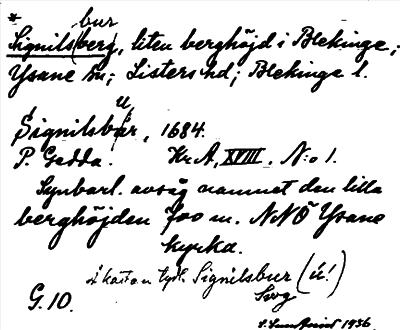 *
bur
Signilsberg, liten berghöjd i Blekinge;
Ysane sn; Listers hd; Blekinge l.
u
Signilsbar, 1684.
P. Gedda. Kr. A, XVIII. N:o 1.
Synbarl. avsåg namnet den lilla
berghöjden 700 m. NNÖ Ysane
kyrka.
å kartan tydl. Signilsbur (ú!)
G. 10.
1936